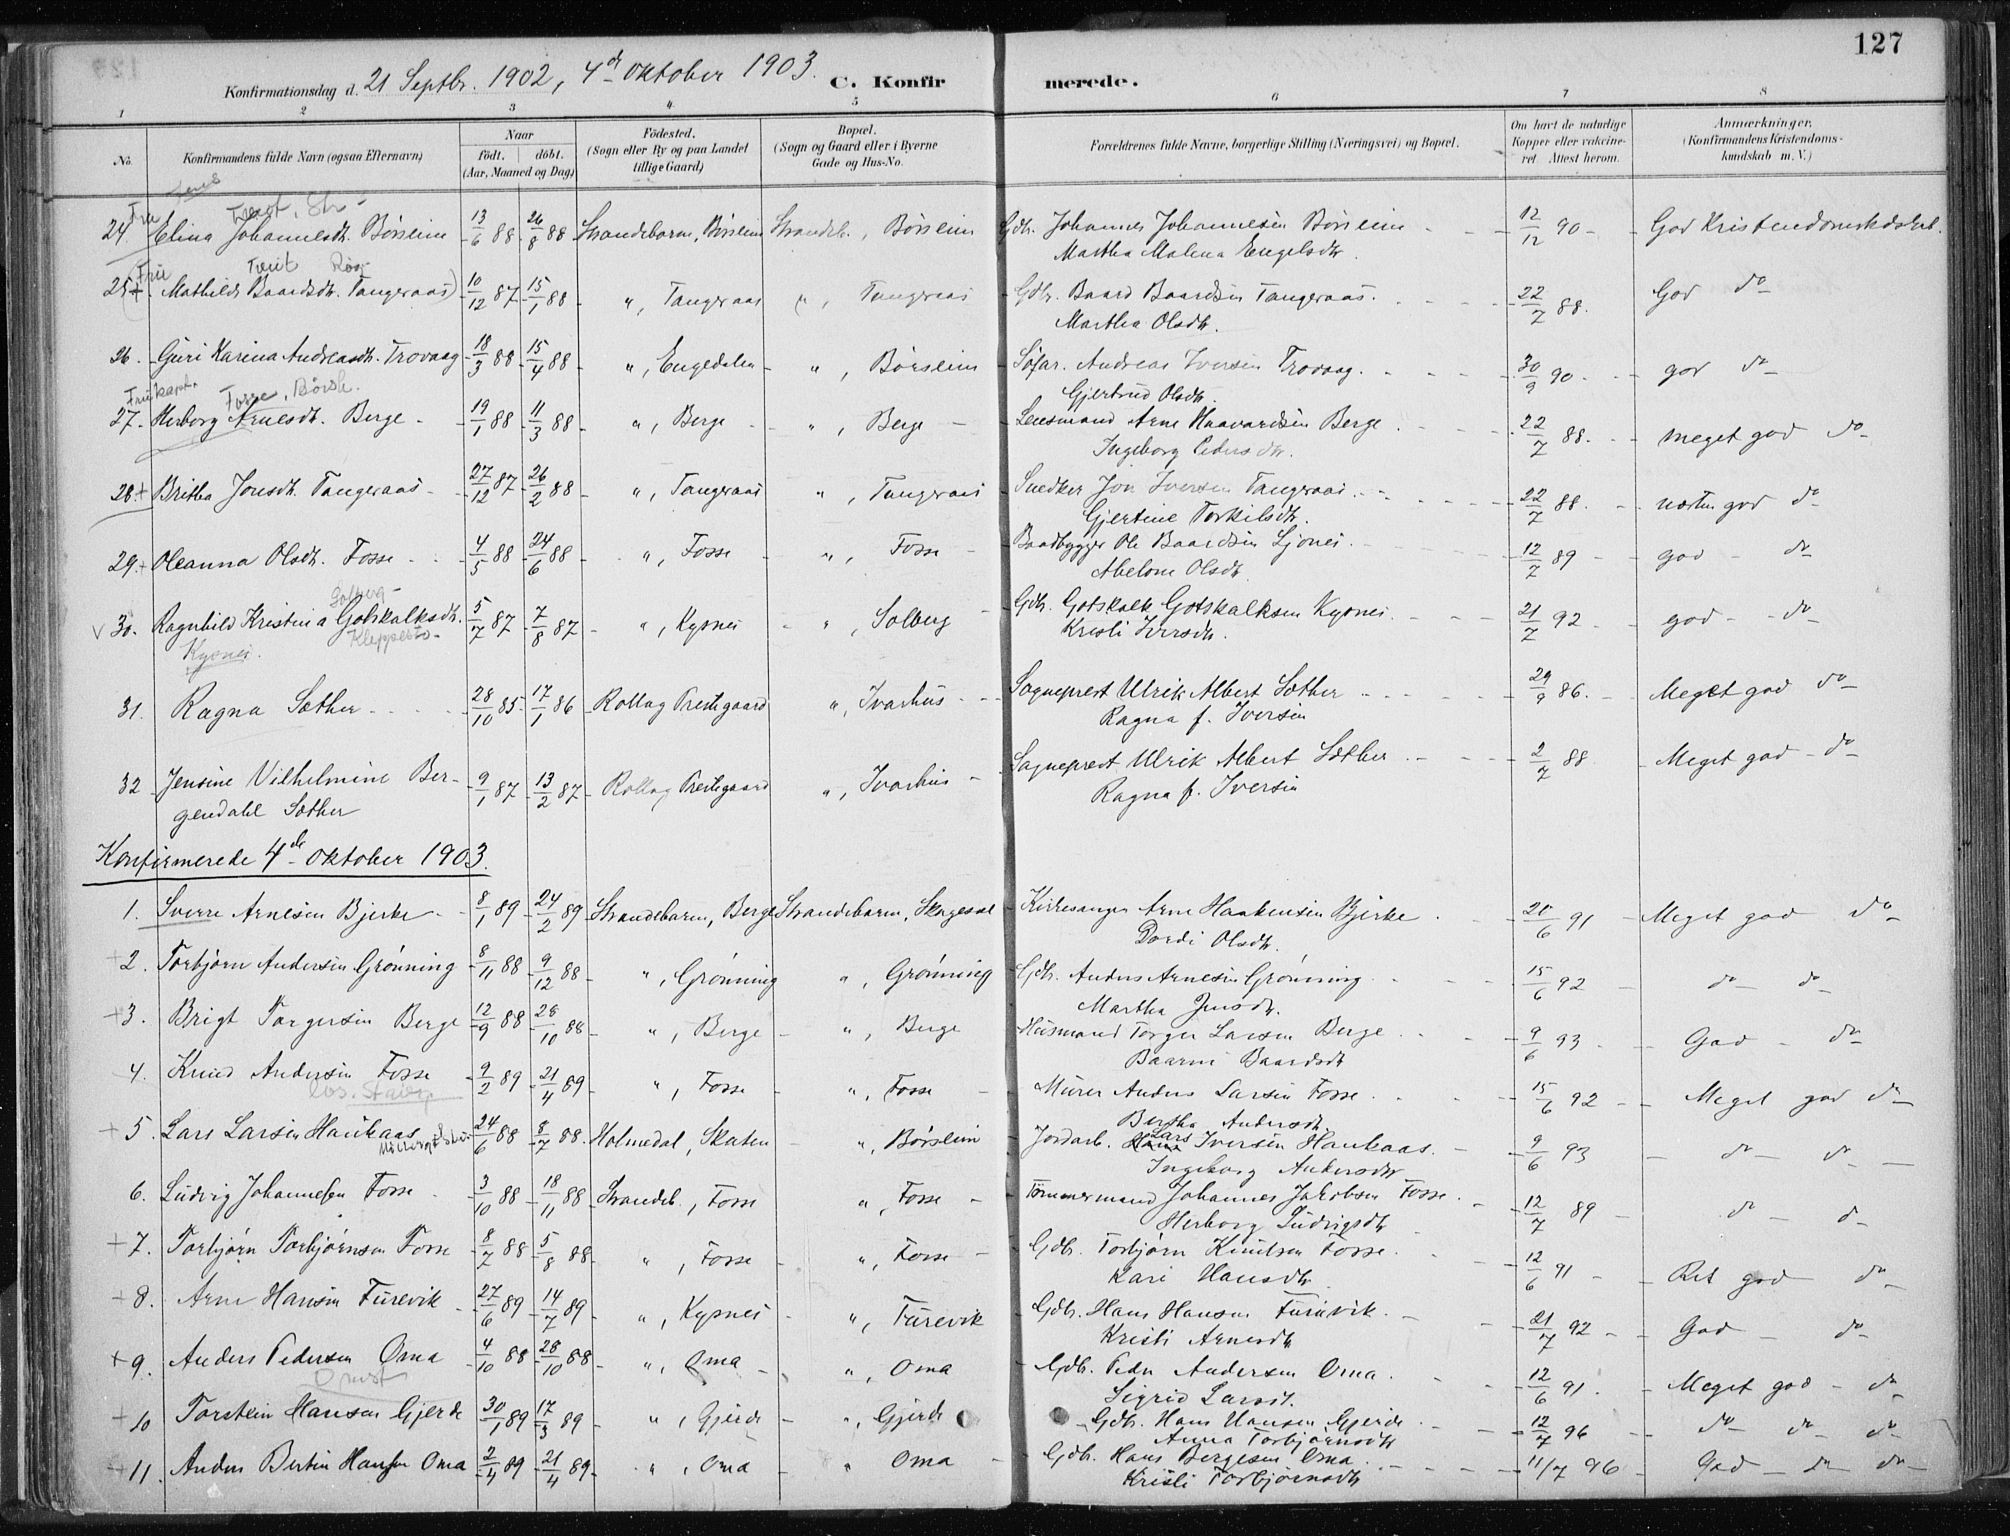 127
Konfirmationsdag d. 21 Septbr. 1902, 4de Oktober 1903.
C. Konfirmerede.
1 2 3 4 5 6 7 8
No. Konfirmandens fulde Navn (ogsaa Efternavn) Naar født. døbt. (Aar, Maaned og Dag) Fødested. (Sogn eller By og paa Landet tillige Gaard) Bopæl. (Sogn og Gaard eller i Byerne Gade og Hus-No. Forældrenes fulde Navne, borgerlige Stilling (Næringsvei) og Bopæl. Om havt de naturlige Kopper eller vakcineret. Attest herom. Anmærkninger. (Konfirmandens Kristendomskundskab m. V.)
24. Elina Johannesdt. Børsleim 13/6 88 26/8 88 Strandebarm, Børsleim Strandeb., Børsleim Gdb. Johannes Johannesen Børsleim 12/12 90 God Kristendomskdskb.
Martha Malena Engelsdtr
25+. Mathilde Baardsdt. Tangeraas 10/12 87 15/1 88 ", Tangeraas ", Tangeraas Gdb. Baard Baardsen Tangeraas. 22/7 88. God do
Martha Olsdtr.
26. Guri Karina Andreasdt. Trovaag 18/3 88 15/4 88 ", Engedalen ", Børsleim Søfar. Andreas Iversen Trovaag. 30/9 90. god do
Gjertrud Olsdtr.
Fosse, Børsh.
27. Herborg Arnesdt. Berge 19/1 88 11/3 88 ", Berge ", Berge Lensmand Arne Haavardsen Berge 22/7 88. meget god do
Ingeborg Pedersdtr.
28+ Britha Jonsdt. Tangeraas 27/12 87 26/2 88 ", Tangeraas ", Tangeraas Snedker Jon Iversen Tangeraas 22/7 88 næsten god do
Gjertine Torkilsdtr.
29+ Oleanna Olsdt. Fosse 4/5 88 24/6 88 ", Fosse ", Fosse Baadbygger Ole Baardsen Ljones 12/7 89 god do
Abelone Olsdtr.
Solberg
30. Ragnhild Kristina Gotskalksdt. 5/7 87 7/8 87 ", Kysnes ", Solberg Gdb. Gotskalk Gotskalksen Kysnes. 21/7 92 god do
Kysnes. Kleppestø Kristi Iversdtr.
31. Ragna Sæther 28/10 85 17/1 86 Rollag Prestegaard ", Ivarhus Sogneprest Ulrik Albert Sæther 29/9 86. Meget god do
Ragna f. Iversen
32 Jensine Vilhelmine Bergendahl Sæther 9/1 87 13/2 87 Rollag Prestegaard ", Ivarhus Sogneprest Ulrik Albert Sæther 2/7 88 Meget god do
Ragna f. Iversen
Konfirmerede 4de Oktober 1903.
1. Sverre Arnesen Bjerke 8/1 89 24/2 89 Strandebarm, Berge Strandebarm, Skagesæl Kirkesanger Arne Haakensen Bjerke 20/6 91 Meget god do
Dordi Olsdtr.
+2. Torbjørn Andersen Grønning 8/11 88 9/12 88 ", Grønning ", Grønning Gdb. Anders Arnesen Grønning 15/6 92 do do
Martha Jensdtr.
+3. Brigt Torgersen Berge 12/9 88 28/10 88 ", Berge ", Berge Husmand Torger Larsen Berge 9/6 93 God do
Baarni Baardsdt
4. Knud Andersen Fosse 9/2 89 21/4 89 ", Fosse ", Fosse Murer Anders Larsen Fosse 15/6 92 Meget god do
Bertha Andersdt.
+5. Lars Larsen Haukaas 24/6 88 8/7 88. Holmedal, Skaten ", Børsleim Jordarb. Lars Iversen Haukaas. 9/6 93 do do
Ingeborg Andersdtr
6. Ludvig Johannesen Fosse 3/10 88 18/11 88 Strandeb., Fosse ", Fosse Tømmermand Johannes Jakobsen Fosse. 12/7 89 do do
Herborg Ludvigsdtr
+7. Torbjørn Torbjørnsen Fosse 8/7 88 5/8 88 ", Fosse ", Fosse Gdb. Torbjørn Knutsen Fosse. 12/6 91 Ret god do
Kari Hansdtr
8. Arne Hansen Furevik 27/6 89 14/7 89 ", Kysnes ", Furevik Gdb. Hans Hansen Furuvik. 21/7 92 God do
Kristi Arnesdtr
+9. Anders Pedersen Oma 4/10 88 28/10 88 ", Oma ", Oma Gdb. Peder Andersen Oma. 12/6 91. Meget god do
Sigrid Larsdt.
+10 Torstein Hansen Gjerde 30/1 89 17/3 89 ", Gjerde ", Gjerde Gdb. Hans Hansen Gjerde 12/7 96 do do do
Anna Torbjørnsdtr
+11. Anders Bertin Hansen Oma 2/4 89 21/4 89 ", Oma " Oma Gdb. Hans Bergesen Oma. 11/7 96 God do do
Kristi Torbjørnsdtr